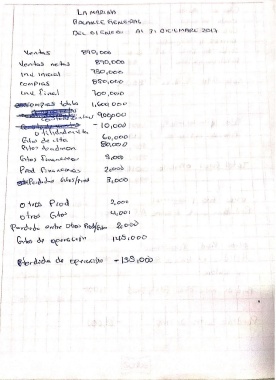 LA MARINA
BALANCE GENERAL
DEL 01 ENERO AL 31 DICIEMBRE 2017
Ventas 890,000
Ventas netas 890,000
Inv inicial 750,000
compras 850,000
Inv final 700,000
compras totales 1,600,000
900,000
-10,000
Utilidad
Gtos de vta 60,000
Gtos admon 80,000
Gtos Financieros 5,000
Prod Financieros 2,000
Perdida Gtos/prod 3,000
otros Prod 2,000
otros Gtos 4,001
Perdida entre Otros Prod/Gtos 2,000
Gtos de operación 145,000
Perdida de operación -155,000